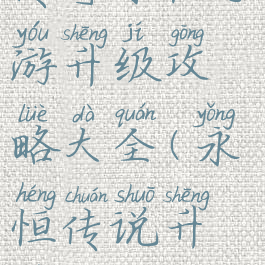 yóu shēng jí gōng
游升级攻
lüè dà quán yǒng
略大全(永
héng chuán shuō shēng
恒传说升